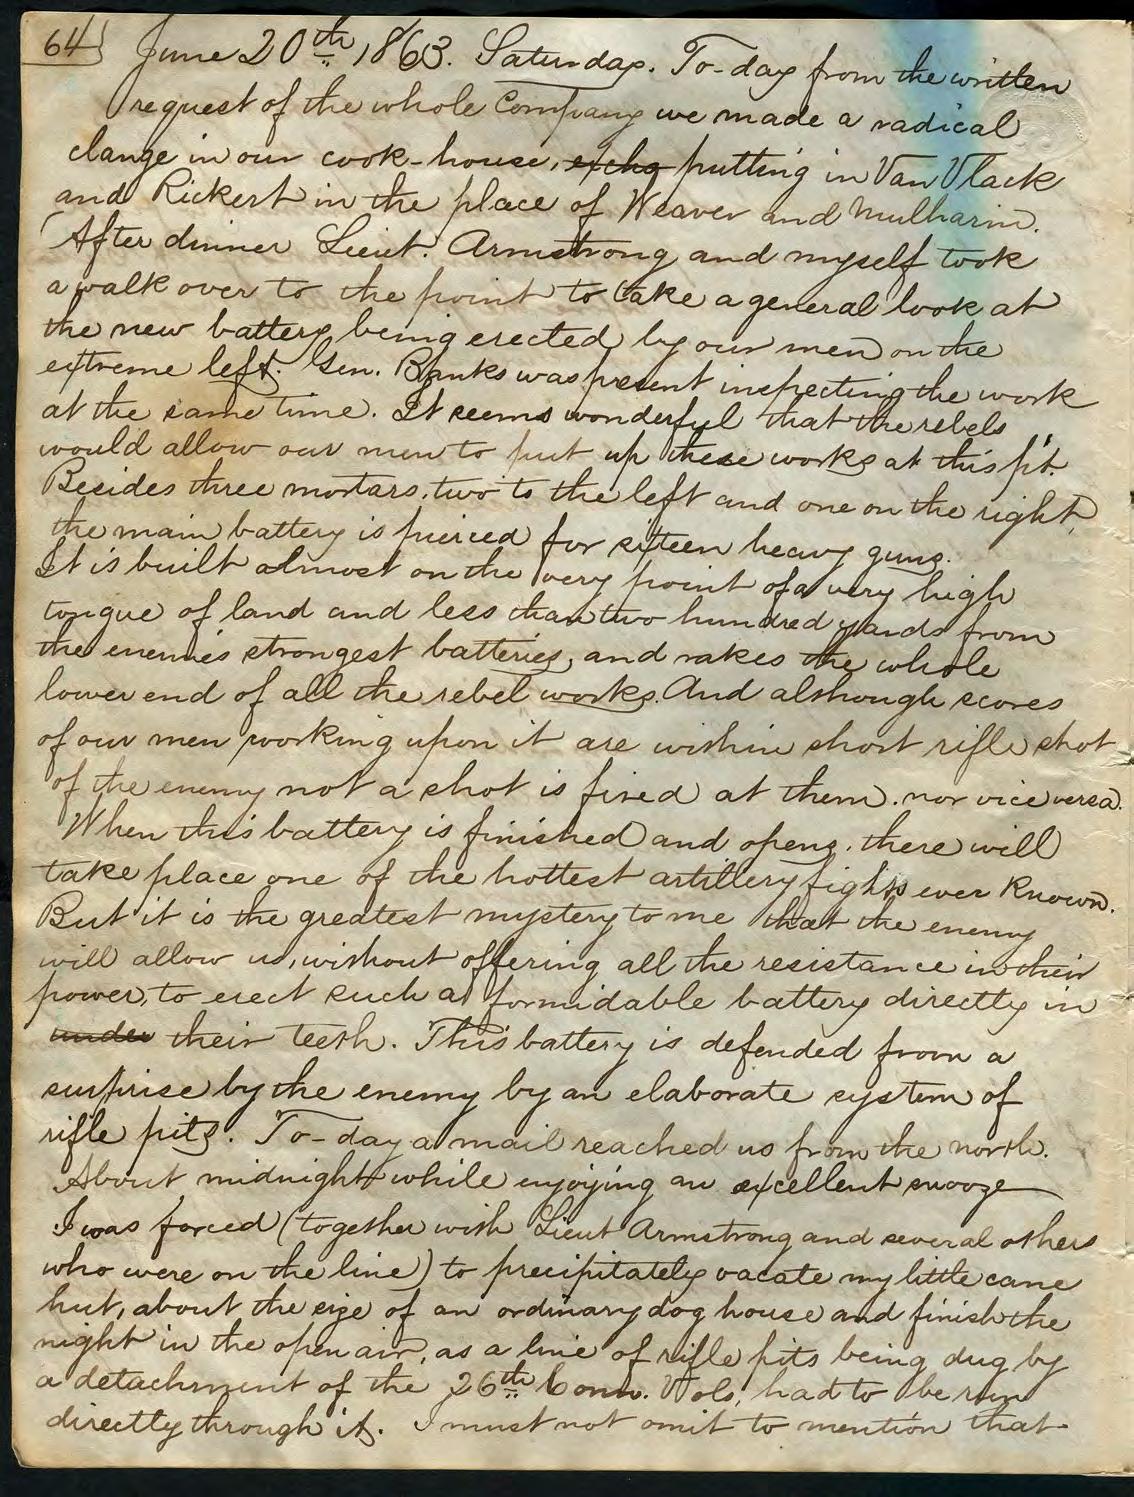 64 June 20th 1863. Saturday. To-day from the written
request of the whole Company we made a radical
change in our cook-house, exchg putting in Van Vlack
and Rickert in the place of Weaver and Mulharin.
After dinner Lieut. Armstrong and myself took
a walk over to the point to take a general look at
the new battery being erected by our men on the
extreme left. Gen. Banks was present inspecting the work
at the same time. It seems wonderful that the rebels
would allow our men to put up these works at this pt.
Besides three mortars, two to the left and one on the right,
the main battery is pierced for sixteen heavy guns.
It is built almost on the very point of a very high
tongue of land and less than two hundred yards from
the enemies strongest batteries, and rakes the whole
lower end of all the rebel works. And although scores
of our men working upon it are within short rifle shot
of the enemy not a shot is fired at them. nor vice versa.
When this battery is finished and opens, there will
take place one of the hottest artillery fights ever known.
But it is the greatest mystery to me that the enemy
will allow us, without offering all the resistance in their
power, to erect such a formidable battery directly in
under their teeth. This battery is defended from a
surprise by the enemy by an elaborate system of
rifle pits. To-day a mail reached us from the north.
About midnight while enjoying an excellent snooze
I was forced (together with Lieut Armstrong and several others
who were on the line) to precipitately vacate my little cane
hut, about the size of an ordinary dog house and finish the
night in the open air, as a line of rifle pits being dug by
a detachment of the 26th Conn. Vols, had to be run
directly through it. I must not omit to mention that